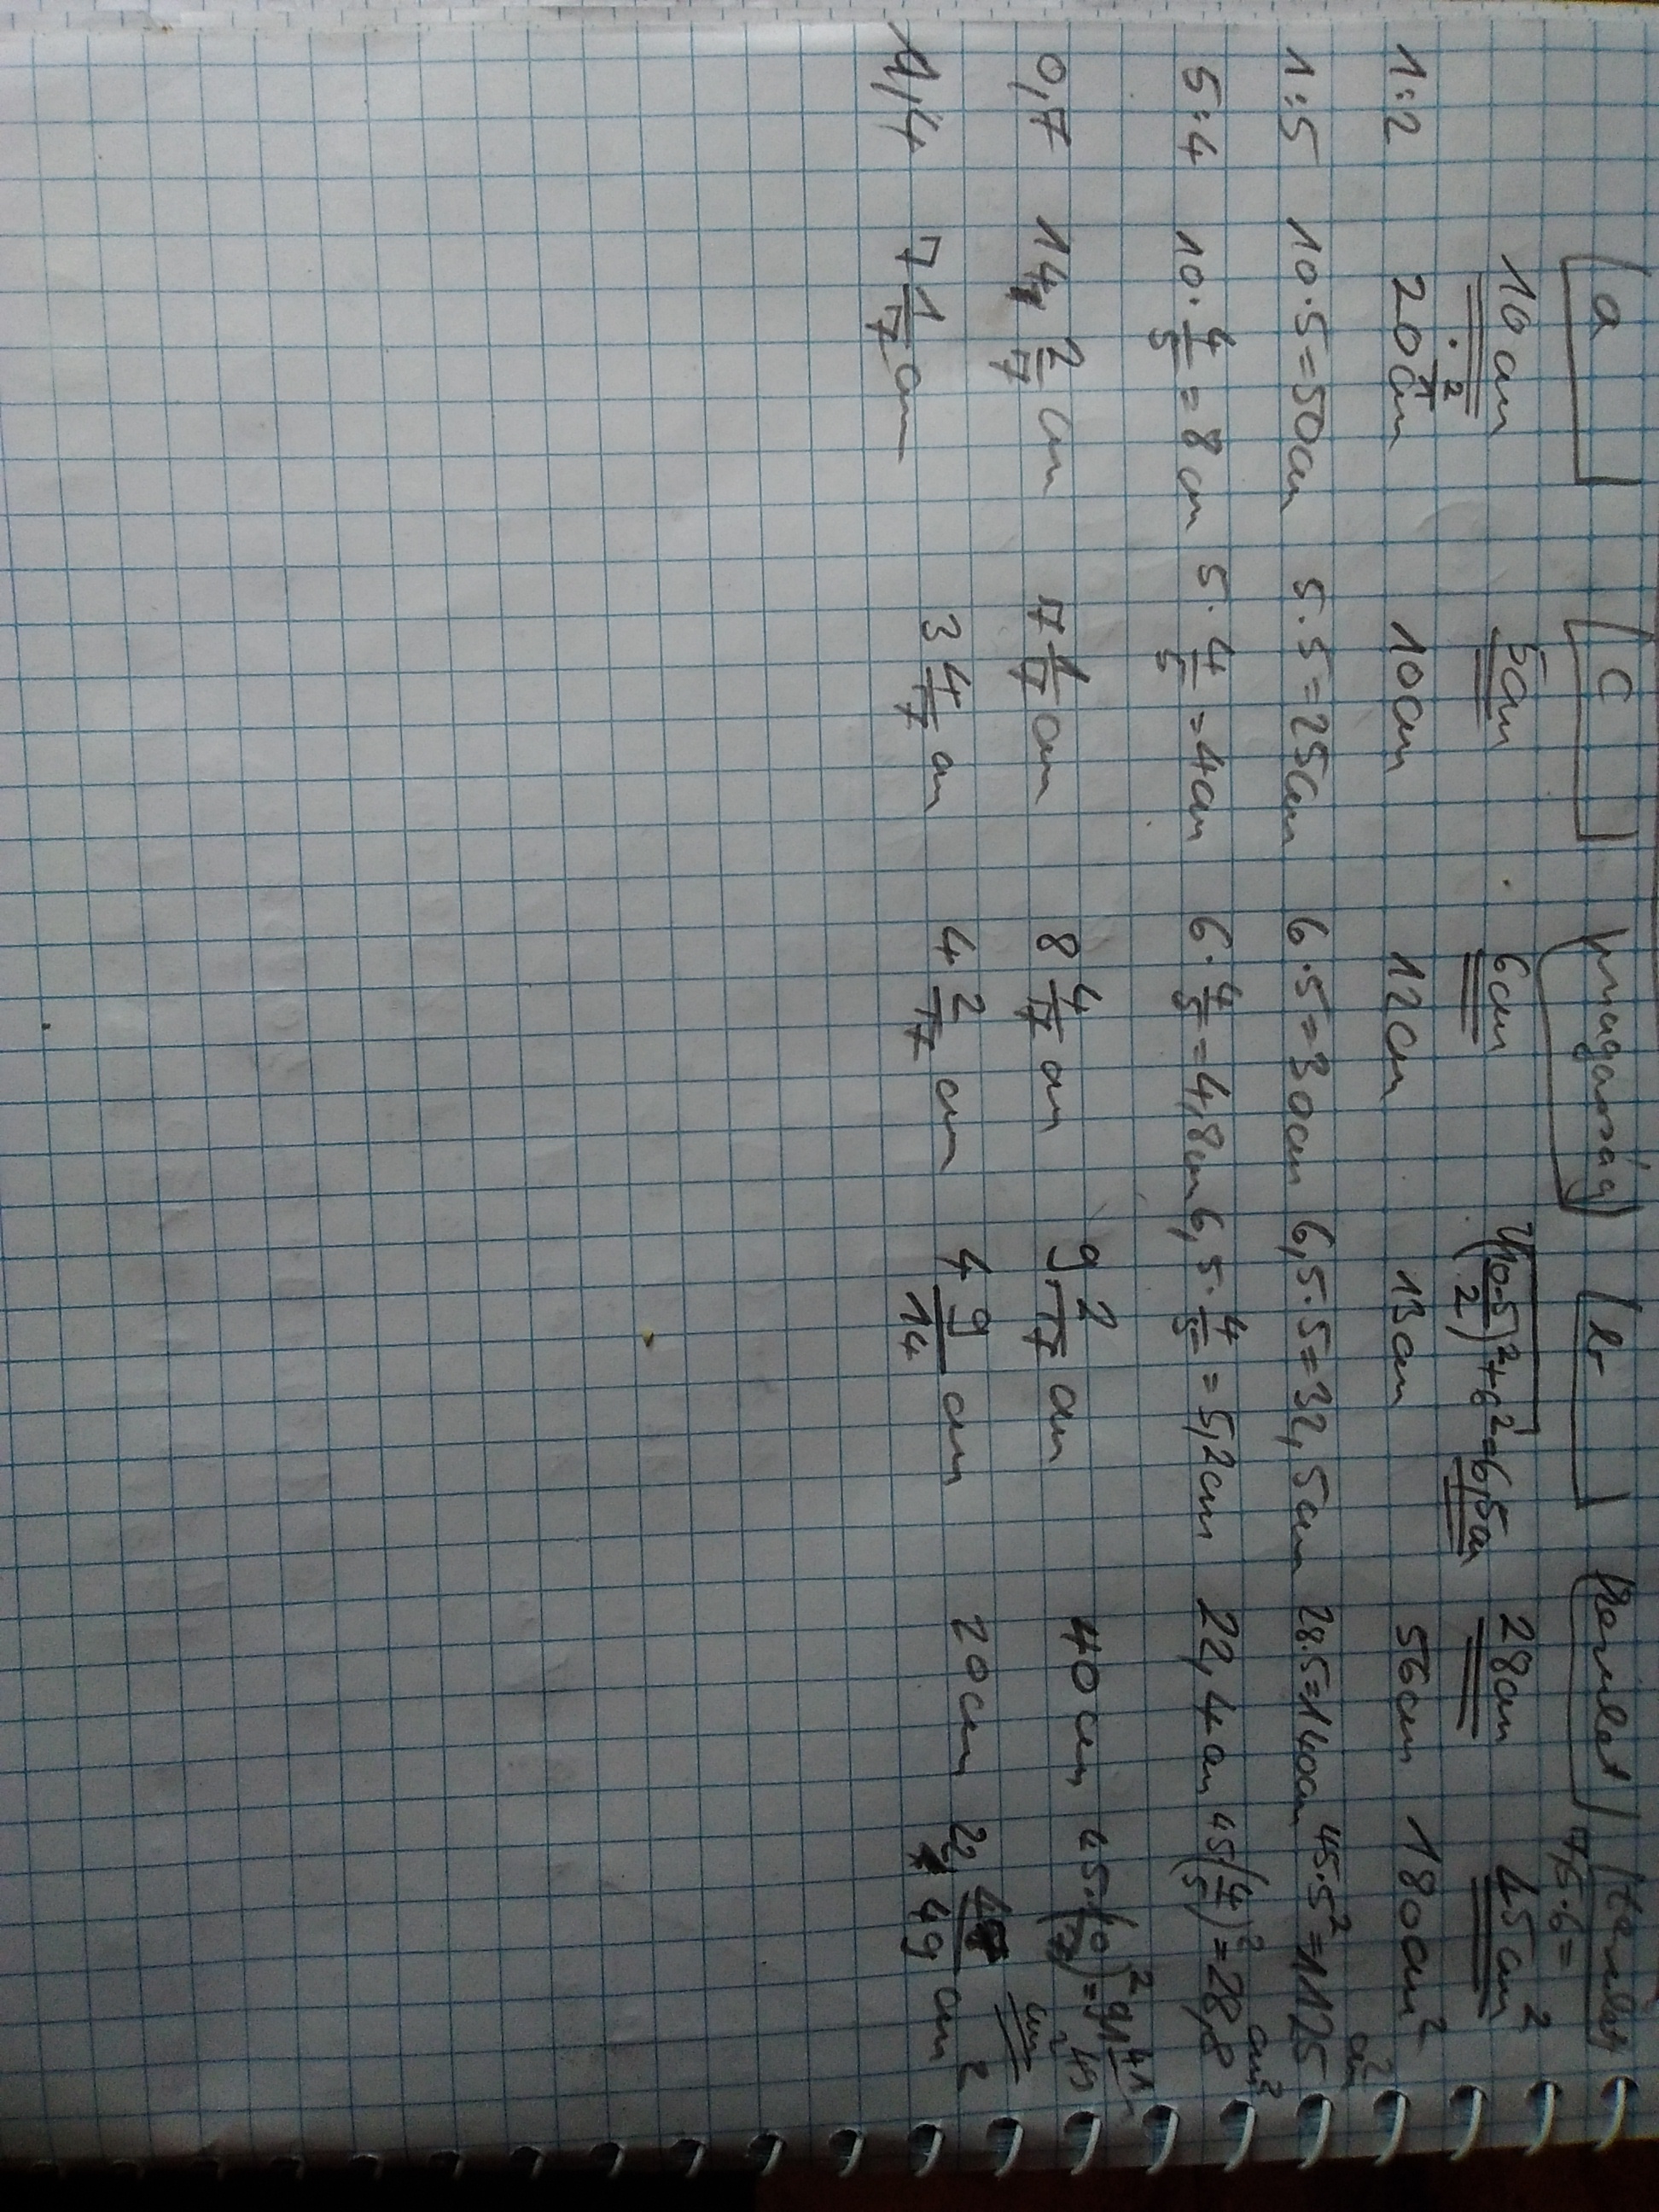 a c magasság b kerület terület
7,5·6=
10cm 5cm 6cm √((10-5)/2)²+6²=6,5cm 28cm 45cm²
·2
1:2 20cm 10cm 12cm 13cm 56cm 180cm²
1:5 10·5=50cm 5·5=25cm 6·5=30cm 6,5·5=32,5cm 28·5=140cm 45·5²=1125 cm²
5:4 10·4/5=8cm 5·4/5=4cm 6·4/5=4,8cm 6,5·4/5=5,2cm 22,4cm 45(4/5)²=28,8 cm²
0,7 14 2/7 cm 7 1/7 cm 8 4/7 cm 9 2/7 cm 40cm 45·(10/7)²=91 41/49 cm²
1,4 7 1/7 cm 3 4/7 cm 4 2/7 cm 4 9/14 cm 20cm 22 /49 cm²